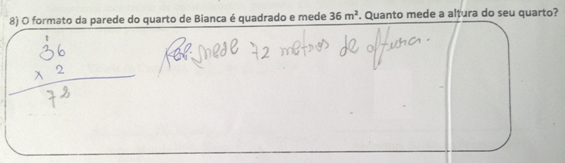 8) O formato da parede do quarto de Bianca é quadrado e mede 36 m². Quanto mede a altura do seu quarto?
1
36
x 2
72
Res: mede 72 metros de altura.